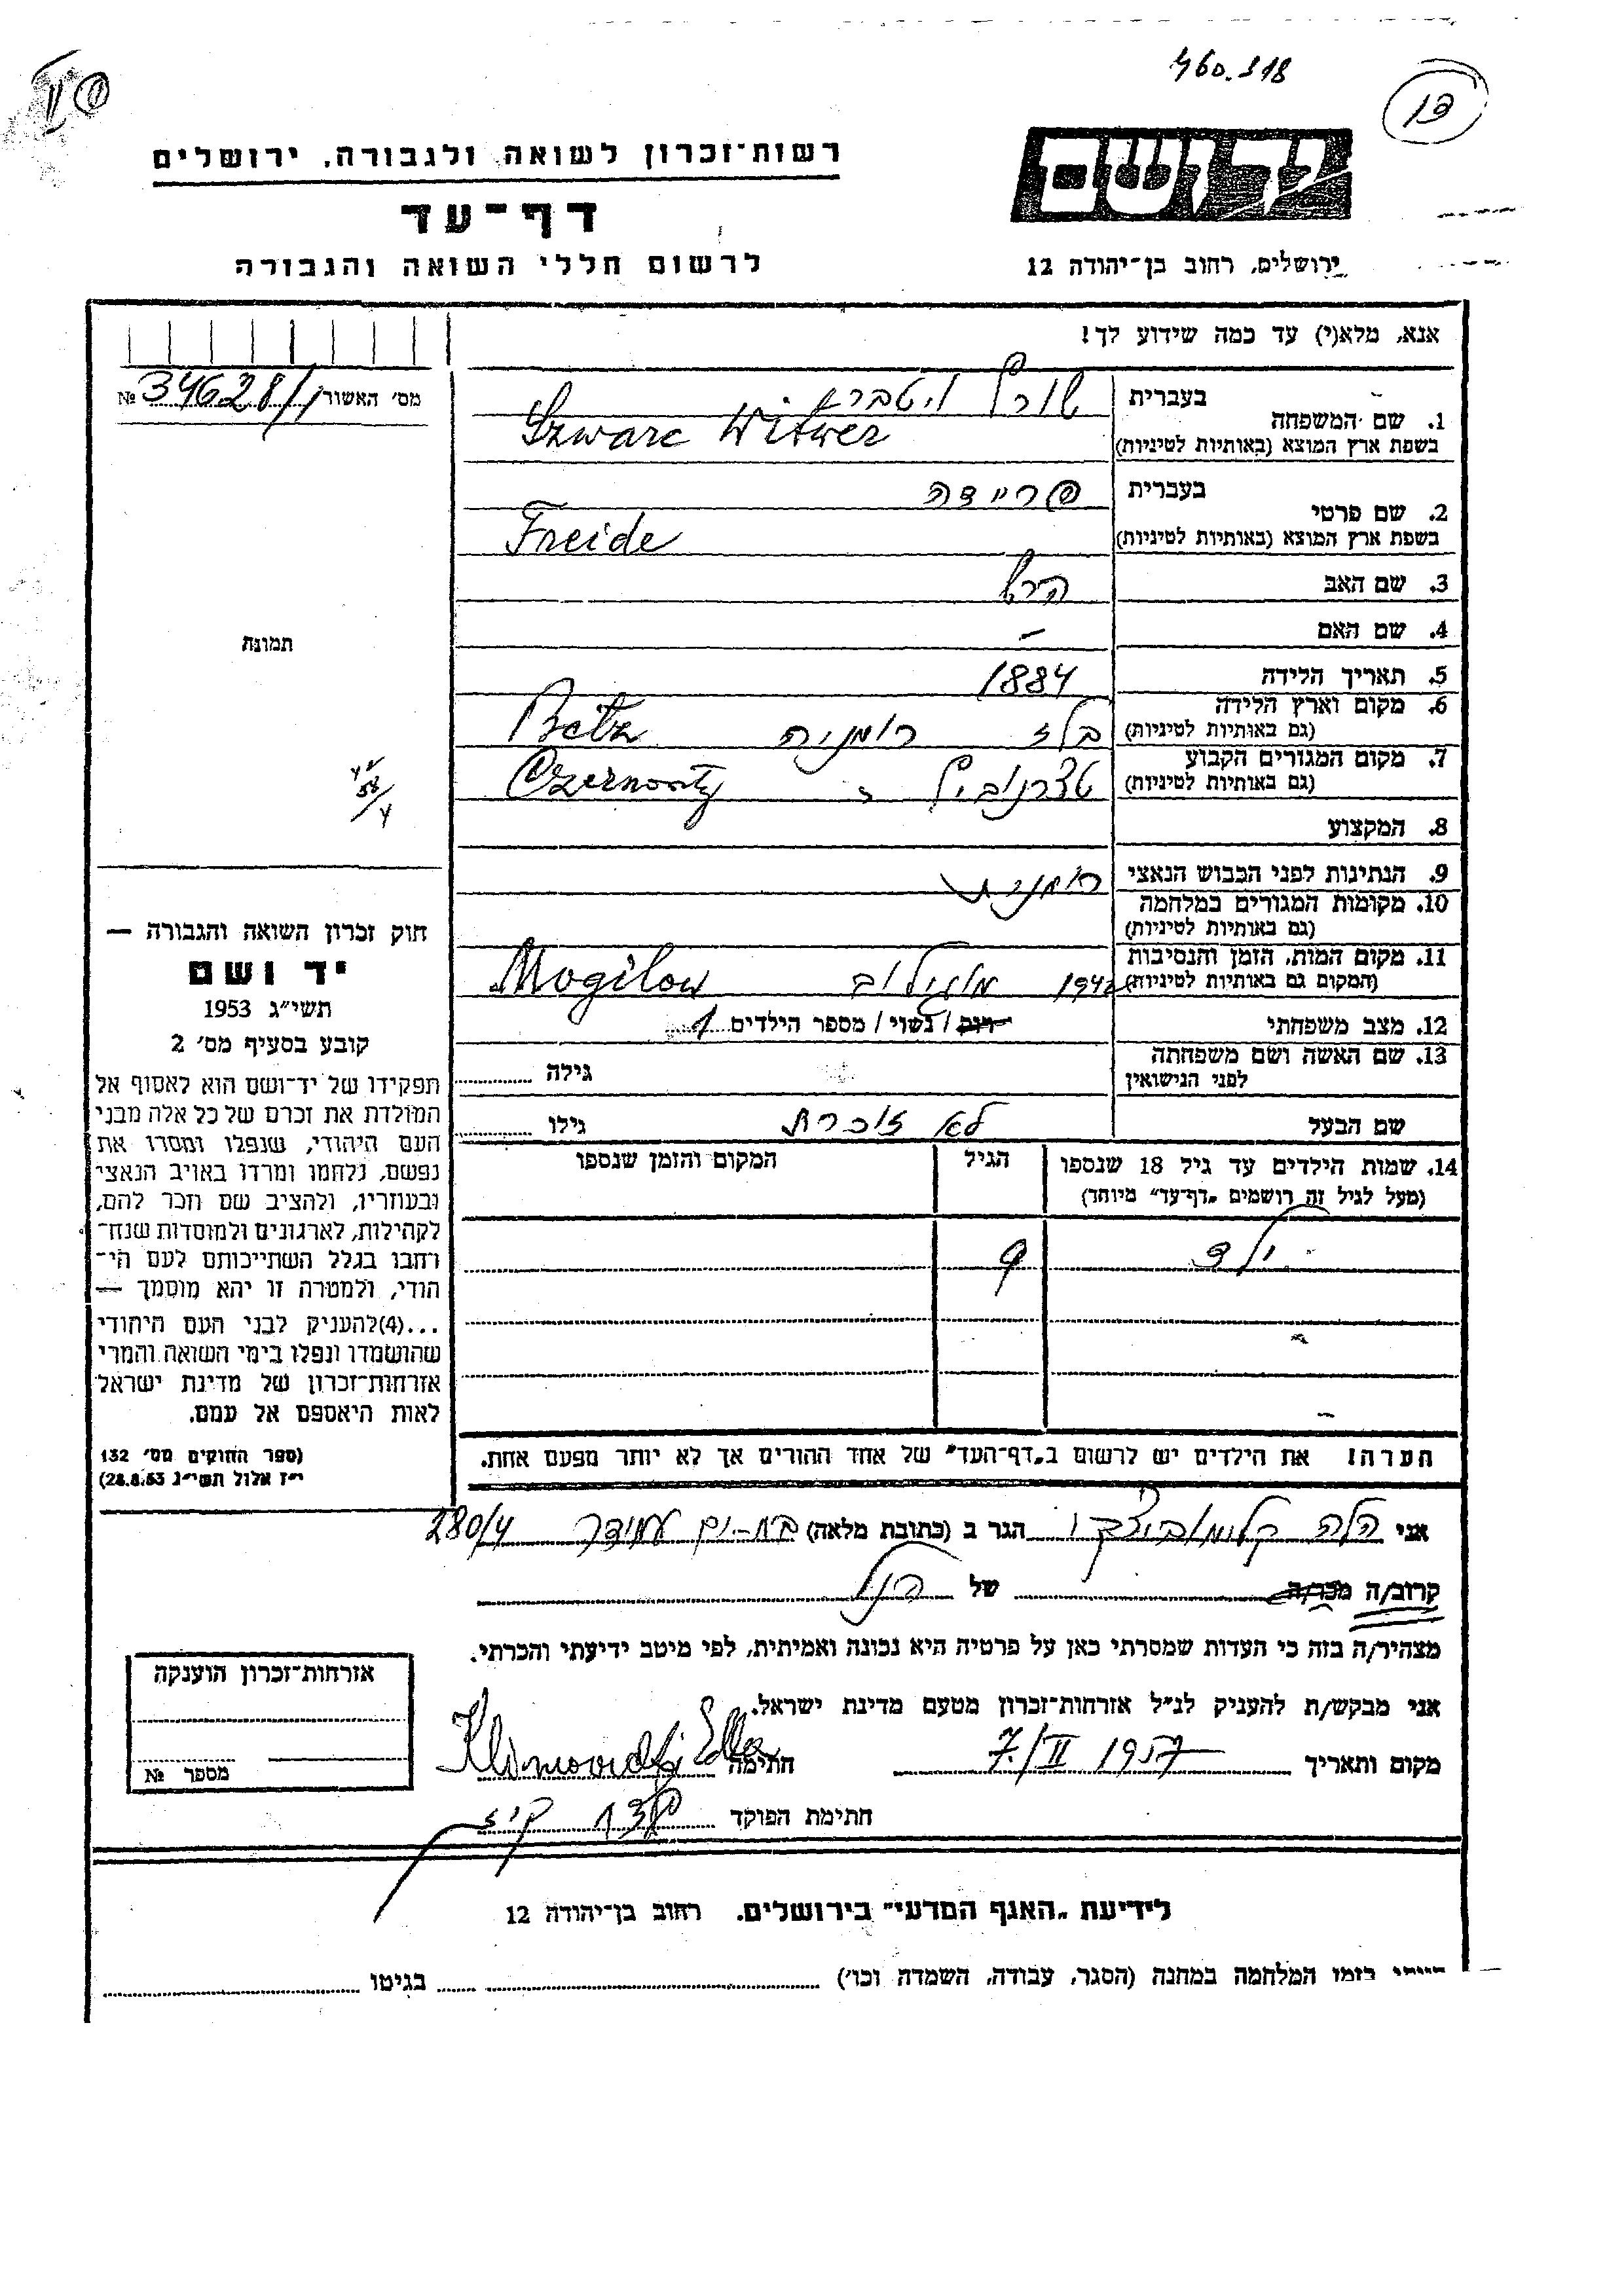 460.318
13
רשות־זכרון לשואה ולגבורה, ירושלים
דף־עד
לרשום חללי השואה והגבורה
יד ושם
ירושלים, רחוב בן־יהודה 12
אנא, מלא(י) עד כמה שידוע לך!
מס׳ האשור 34628/1 №
1. שם המשפחה
בעברית
בשפת ארץ המוצא (באותיות לטיניות) Szwarc Witwer
2. שם פרטי
בעברית פריידה
בשפת ארץ המוצא (באותיות לטיניות) Freide
3. שם האב הרש
4. שם האם –
תמונת
5. תאריך הלידה 1884
6. מקום וארץ הלידה
(גם באותיות לטיניות) בלז רומניה Betz
7. מקום המגורים הקבוע
(גם באותיות לטיניות) Czernovitz
8. המקצוע
9. הנתינות לפני הכבוש הנאצי רומנית
10. מקומות המגורים במלחמה
(גם באותיות לטיניות)
11. מקום המות, הזמן והנסיבות
(המקום גם באותיות לטיניות) 1942 מוגילוב Mogilow
12. מצב משפחתי רווק / נשוי / מספר הילדים 1
13. שם האשה ושם משפחתה
לפני הנישואין גילה
שם הבעל לא זוכרת גילו
14. שמות הילדים עד גיל 18 שנספו
(מעל לגיל זה רושמים „דף־עד״ מיוחד)
הגיל
המקום והזמן שנספו
ילד 9
הערה! את הילדים יש לרשום ב„דף־העד״ של אחד ההורים אך לא יותר מפעם אחת.
חוק זכרון השואה והגבורה —
יד ושם
תשי״ג 1953
קובע בסעיף מס׳ 2
תפקידו של יד־ושם הוא לאסוף אל
המולדת את זכרם של כל אלה מבני
העם היהודי, שנפלו ומסרו את
נפשם, נלחמו ומרדו באויב הנאצי
ובעוזריו, ולהציב שם וזכר להם,
לקהילות, לארגונים ולמוסדות שנח־
רבו בגלל השתייכותם לעם הי־
הודי, ולמטרה זו יהא מוסמך —
...(4)להעניק לבני העם היהודי
שהושמדו ונפלו בימי השואה והמרי
אזרחות־זכרון של מדינת ישראל
לאות היאספם אל עמם.
(ספר החוקים מס׳ 132
י״ז אלול תשי״ג 28.8.53)
אני הלה הגר ב (כתובת מלאה) בת-ים עמידר 280/4
קרוב/ה מכר/ה של הנ״ל
מצהיר/ה בזה כי העדות שמסרתי כאן על פרטיה היא נכונה ואמיתית, לפי מיטב ידיעתי והכרתי.
אני מבקש/ת להעניק לנ״ל אזרחות־זכרון מטעם מדינת ישראל.
מקום ותאריך 7/II 1957 חתימה Klimovidzki Ella
חתימת הפוקד
אזרחות־זכרון הוענקה
מספר №
לידיעת „האגף המדעי״ בירושלים. רחוב בן־יהודה 12
בזמן המלחמה במחנה (הסגר, עבודה, השמדה וכו׳) בגיטו